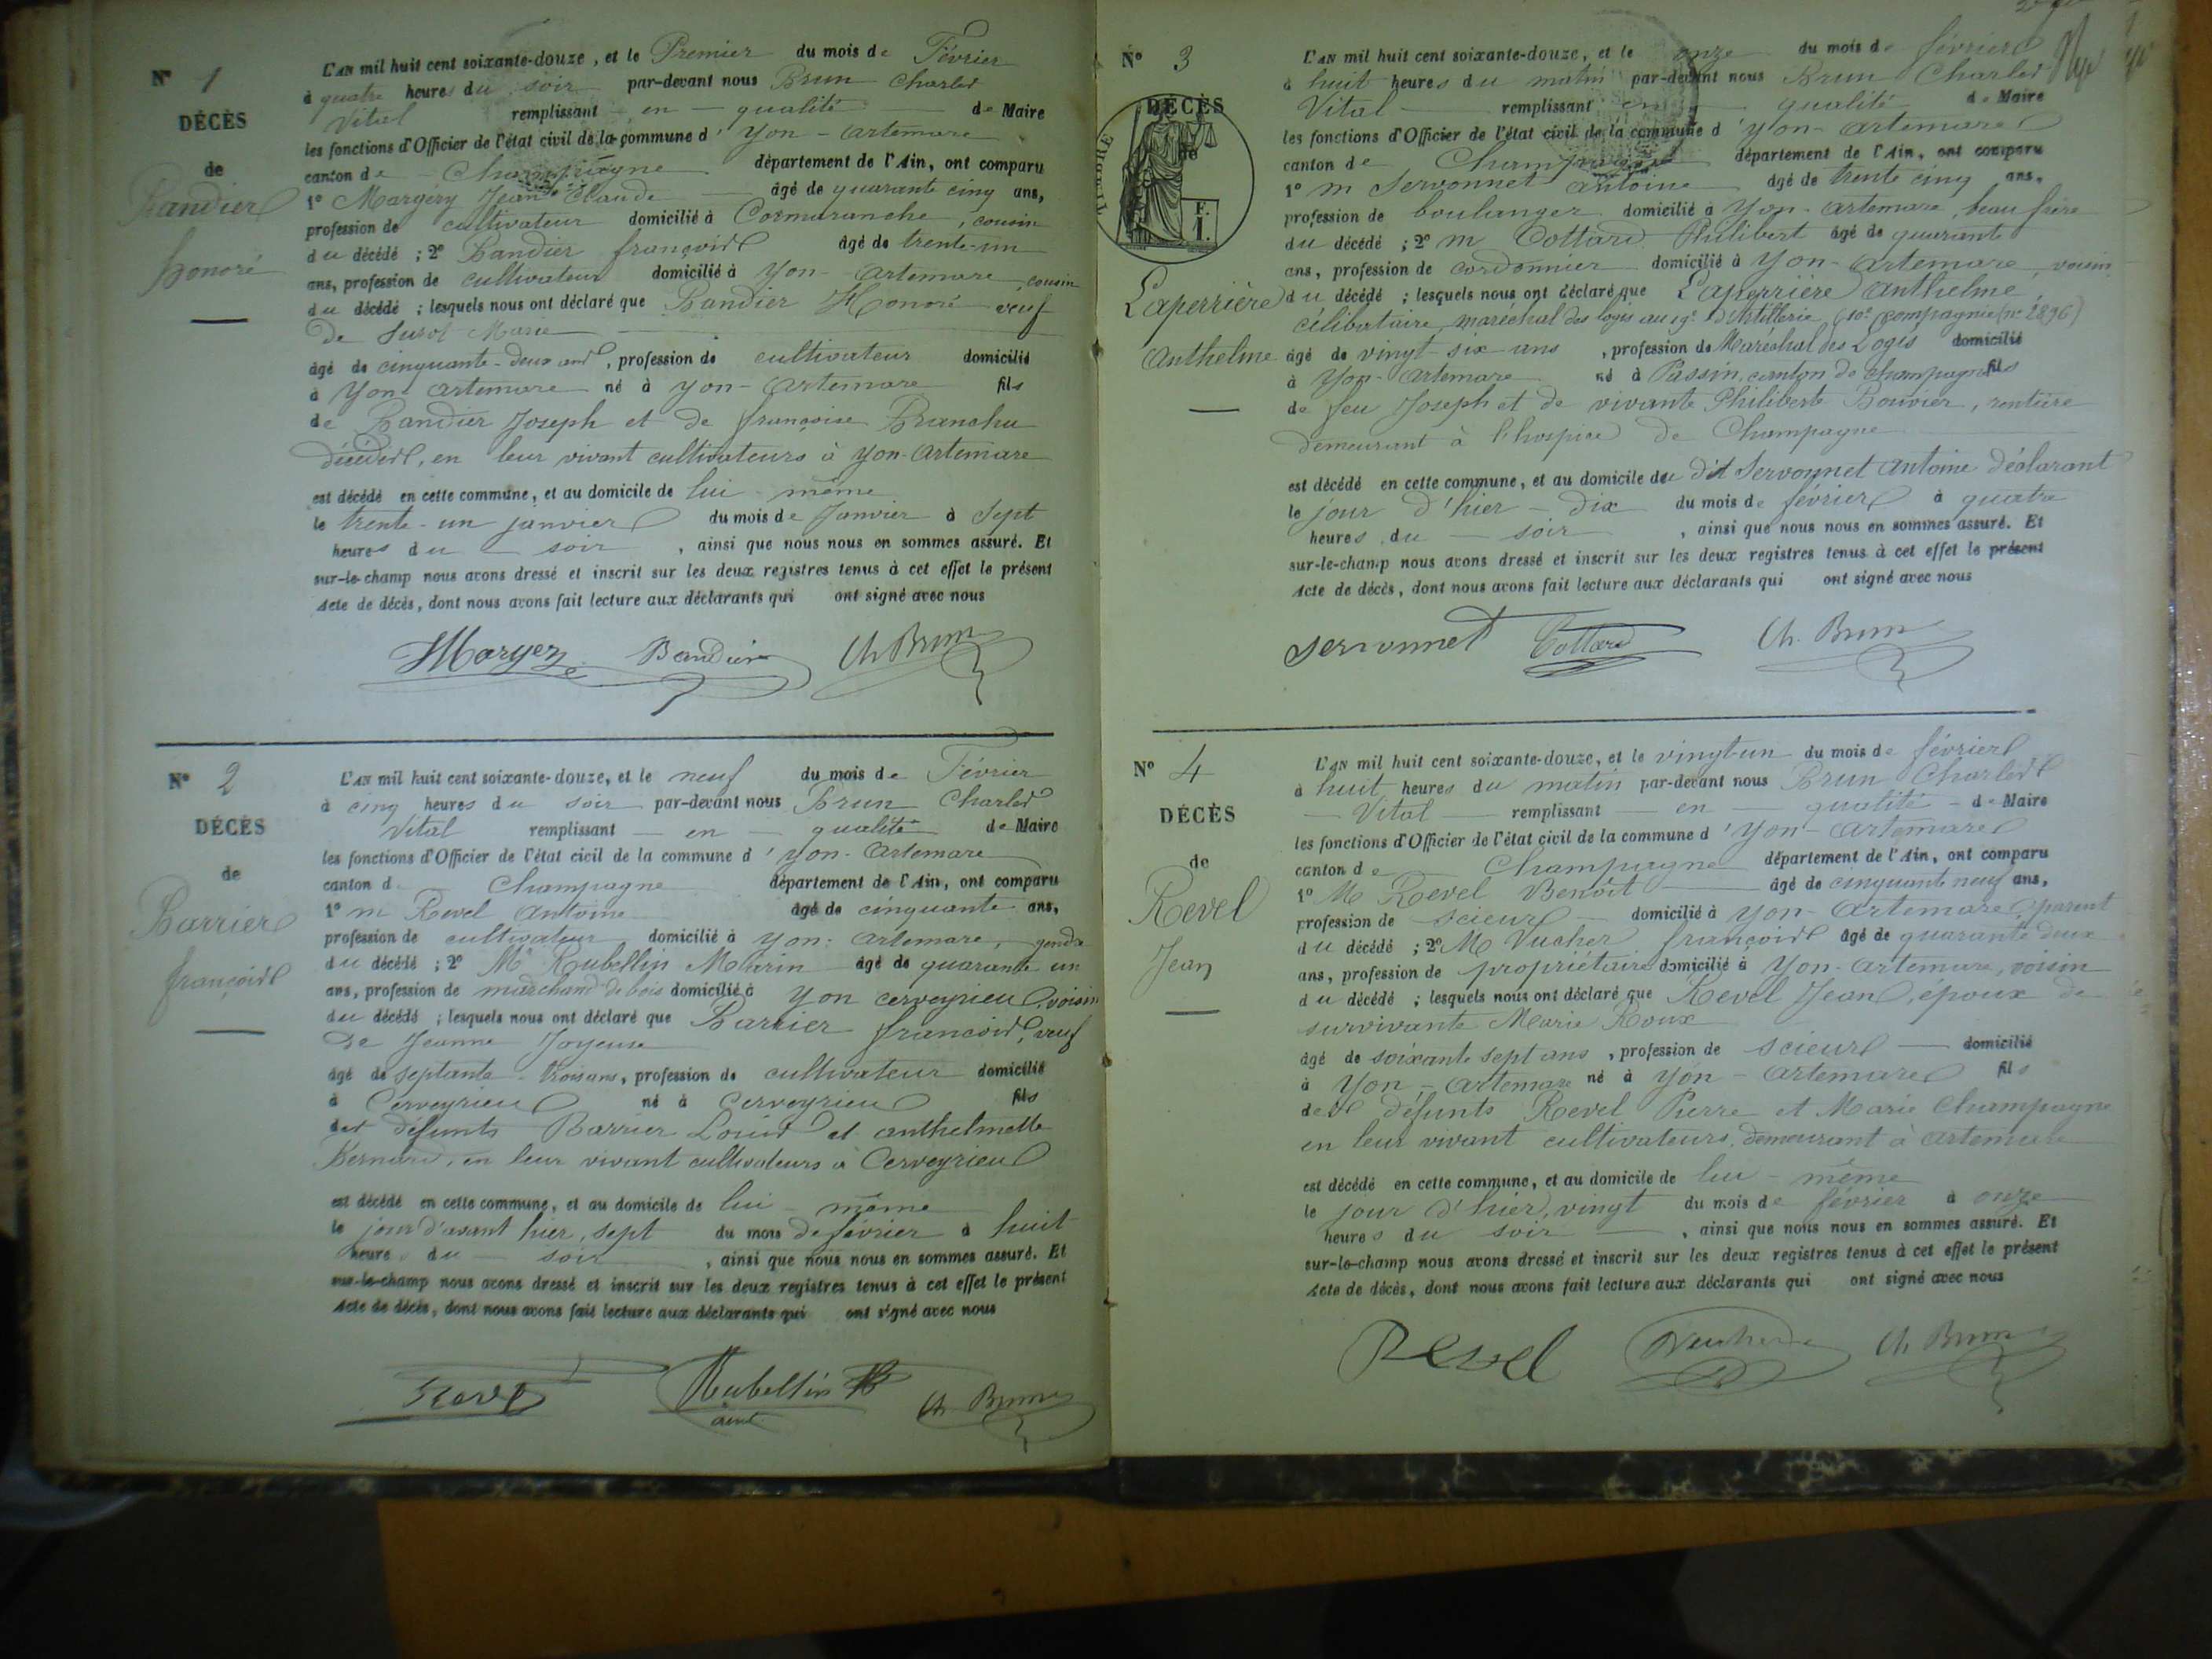 N° 1
DÉCÈS
de
Bandier
honoré
L'AN mil huit cent soixante-douze, et le Premier du mois de Février
à quatre heures du soir par-devant nous Brun Charles
Vital remplissant en qualité de Maire
les fonctions d'Officier de l'état civil de la commune d'Yon-Artemare
canton de Champagne département de l'Ain, ont comparu
1° Margery Jean Claude âgé de quarante cinq ans,
profession de cultivateur domicilié à Cormaranche, cousin
du décédé ; 2° Bandier françois âgé de trente-un
ans, profession de cultivateur domicilié à Yon-Artemare, cousin
du décédé ; lesquels nous ont déclaré que Bandier Honoré veuf
De Marie
âgé de cinquante-deux ans, profession de cultivateur domicilié
à Yon artemare né à Yon-Artemare fils
de Bandier Joseph et de françoise Branchu
décédés, en leur vivant cultivateurs à Yon-Artemare
est décédé en cette commune, et au domicile de lui-même
le trente-un janvier du mois de Janvier à Sept
heures du soir, ainsi que nous nous en sommes assuré. Et
sur-le-champ nous avons dressé et inscrit sur les deux registres tenus à cet effet le présent
Acte de décès, dont nous avons fait lecture aux déclarants qui ont signé avec nous
Bandier Ch Brun
N° 2
DÉCÈS
de
Barrier
françois
L'AN mil huit cent soixante-douze, et le neuf du mois de Février
à cinq heures du soir par-devant nous Brun Charles
Vital remplissant en qualité de Maire
les fonctions d'Officier de l'état civil de la commune d'Yon-Artemare
canton d Champagne département de l'Ain, ont comparu
1° m Revel Antoine âgé de cinquante ans,
profession de cultivateur domicilié à Yon-Artemare, gendre
du décédé ; 2° Mr Rubellin Marin âgé de quarante un
ans, profession de marchand de bois domicilié à Yon cerveyrieu, voisin
du décédé ; lesquels nous ont déclaré que Barrier françois, veuf
De Jeanne Joyeuse
âgé de septante-trois ans, profession de cultivateur domicilié
à Cerveyrieu né à Cerveyrieu fils
des défunts Barrier Louis et anthelmette
Bernard, en leur vivant cultivateurs à Cerveyrieu
est décédé en cette commune, et au domicile de lui-même
le jour d'avant hier, sept du mois de février à huit
heure du soir, ainsi que nous nous en sommes assuré. Et
sur-le-champ nous avons dressé et inscrit sur les deux registres tenus à cet effet le présent
Acte de décès, dont nous avons fait lecture aux déclarants qui ont signé avec nous
Revel Rubellin Ch Brun
N° 3
DÉCÈS
de
TIMBRE
Laperrière
Anthelme
L'AN mil huit cent soixante-douze, et le onze du mois de février
à huit heures du matin par-devant nous Brun Charles
Vital remplissant en qualité de Maire
les fonctions d'Officier de l'état civil de la commune d'Yon-Artemare
canton de Champagne département de l'Ain, ont comparu
1° m Servonnet antoine âgé de trente cinq ans,
profession de boulanger domicilié à Yon-Artemare, beau frère
du décédé ; 2° m Cottard Philibert âgé de quarante
ans, profession de cordonnier domicilié à Yon-Artemare, voisin
du décédé ; lesquels nous ont déclaré que Laperrière anthelme
célibataire, maréchal des logis au 19e D'Artillerie (10e Compagnie (n° 2896)
âgé de vingt-six ans, profession de Maréchal des Logis domicilié
à Yon-Artemare né à Passin, canton de champagne fils
de feu Joseph et de vivante Philiberte Bouvier, rentière
demeurant à l'hospice de Champagne
est décédé en cette commune, et au domicile du dit Servonnet Antoine Déclarant
le jour d'hier dix du mois de février à quatre
heures du soir, ainsi que nous nous en sommes assuré. Et
sur-le-champ nous avons dressé et inscrit sur les deux registres tenus à cet effet le présent
Acte de décès, dont nous avons fait lecture aux déclarants qui ont signé avec nous
Servonnet Cottard Ch. Brun
N° 4
DÉCÈS
de
Revel
Jean
L'AN mil huit cent soixante-douze, et le vingt-un du mois de février
à huit heures du matin par-devant nous Brun Charles
Vital remplissant en qualité de Maire
les fonctions d'Officier de l'état civil de la commune d'Yon-Artemare
canton de Champagne département de l'Ain, ont comparu
1° M Revel Benoît âgé de cinquante neuf ans,
profession de scieur domicilié à Yon-Artemare, parent
du décédé ; 2° M Vucher françois âgé de quarante deux
ans, profession de propriétaire domicilié à Yon-Artemare, voisin
du décédé ; lesquels nous ont déclaré que Revel Jean, époux de
survivante Marie Roux
âgé de soixante sept ans, profession de scieur domicilié
à Yon-Artemare né à Yon-Artemare fils
des défunts Revel Pierre et Marie Champagne
en leur vivant cultivateurs, demeurant à Artemare
est décédé en cette commune, et au domicile de lui-même
le jour d'hier, vingt du mois de février à onze
heures du soir, ainsi que nous nous en sommes assuré. Et
sur-le-champ nous avons dressé et inscrit sur les deux registres tenus à cet effet le présent
Acte de décès, dont nous avons fait lecture aux déclarants qui ont signé avec nous
Revel Ch Brun